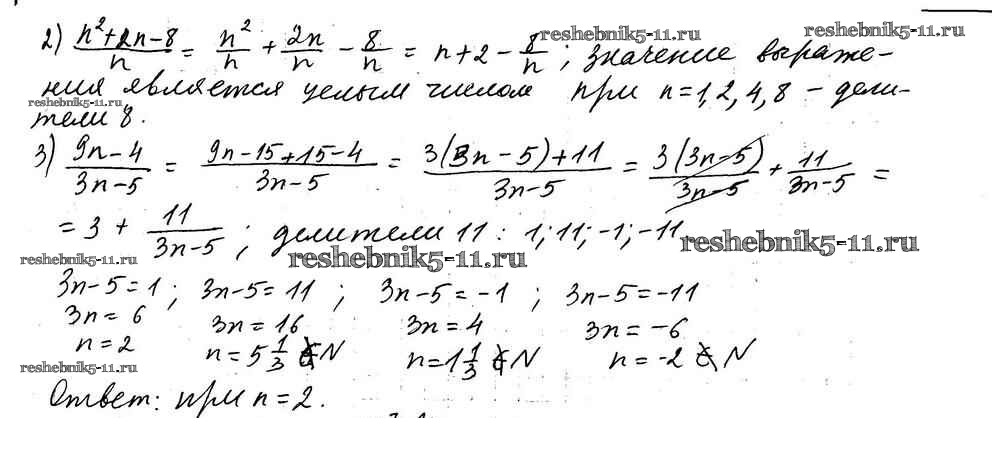 2) (n²+2n−8)/n = n²/n + 2n/n − 8/n = n+2 − 8/n ; значение выраже-
reshebnik5-11.ru
reshebnik5-11.ru
ния является целым числом при n=1,2,4,8 – дели-
reshebnik5-11.ru
тели 8.
3) (9n−4)/(3n−5) = (9n−15+15−4)/(3n−5) = (3(3n−5)+11)/(3n−5) = 3(3n−5)/(3n−5) + 11/(3n−5) =
= 3 + 11/(3n−5) ; делители 11 : 1; 11; -1; -11
reshebnik5-11.ru
reshebnik5-11.ru
reshebnik5-11.ru
3n−5=1 ; 3n−5=11 ; 3n−5=−1 ; 3n−5=−11
3n=6 3n=16 3n=4 3n=−6
n=2 n=5 1/3 ∉ N n=1 1/3 ∉ N n=-2 ∉ N
reshebnik5-11.ru
Ответ: при n=2.